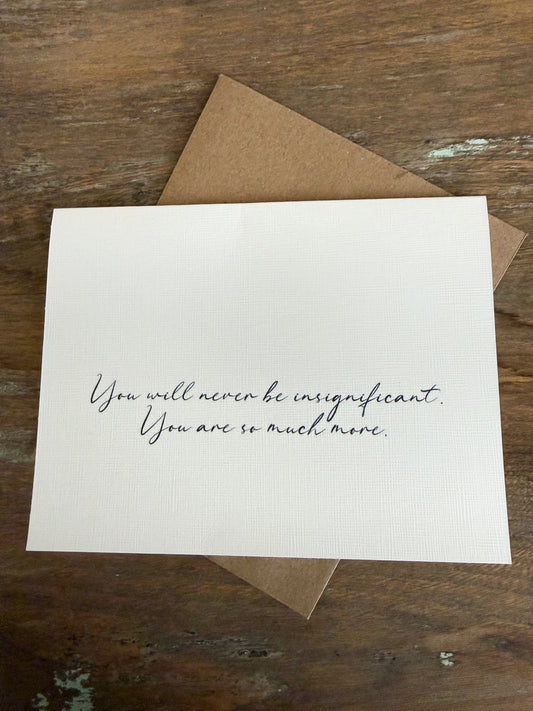 You will never be insignificant.
You are so much more.